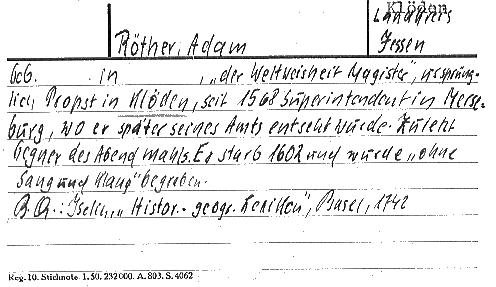 Klöden
Landkreis
Röther, Adam
Jessen
Geb. . in , „der Weltweisheit Magister", ursprüng-
lich Propst in Klöden, seit 1568 Superintendent in Merse-
burg, wo er später seines Amts entsetzt wurde. Zuletzt
Gegner des Abendmahls. Er starb 1602 und wurde „ohne
Sang und Klang" begraben.
B.Q.: Iselin, „Histor.- geogr. Lexikon", Basel, 1742
Reg. 10. Stichnote. 1. 50. 232000. A. 803. S. 4062